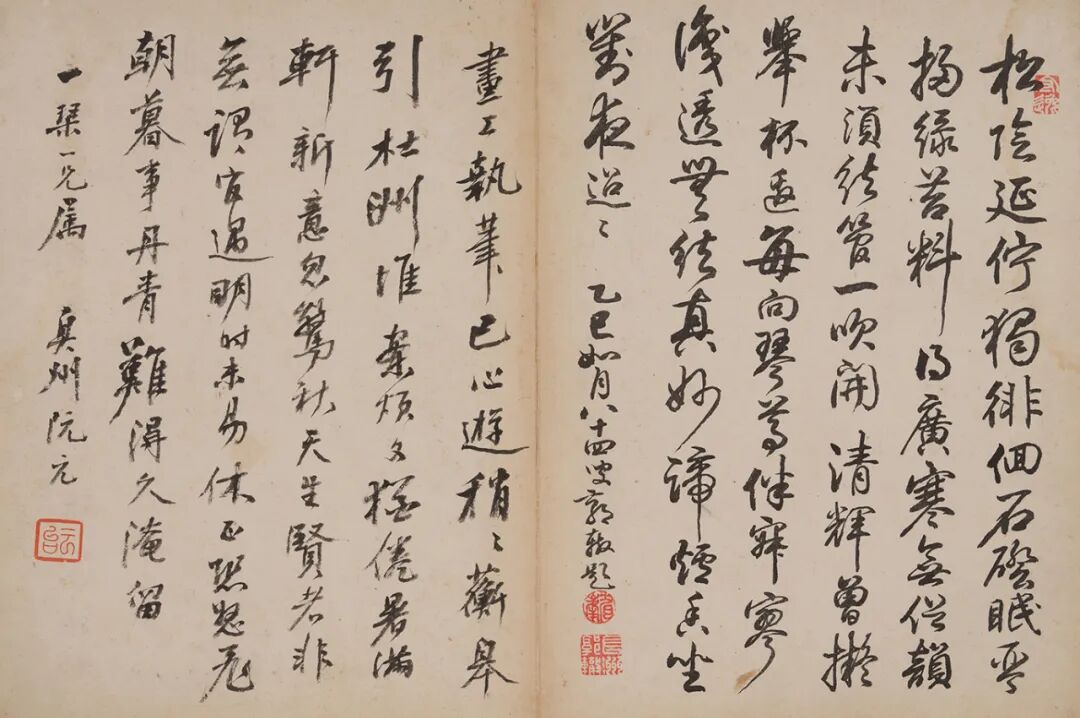 松陰延佇獨徘徊石磴眠琴
掃綠苔料得廣寒無俗韻
未須管一吹開清輝曾擬
舉杯邀每向琴尊伴寂寥
透無絃真妙諦爐香坐
對夜迢〻 乙巳如月八十四叟郭題
畫工執筆已心遊稍〻蘅皋
引杜洲惟案煩文猶倦暑滿
軒新意忽驚秋天生賢者非
無謂官遇明時未易休正恐怒飛
朝暮事丹青難得久淹留
一琹一兄属 阮元